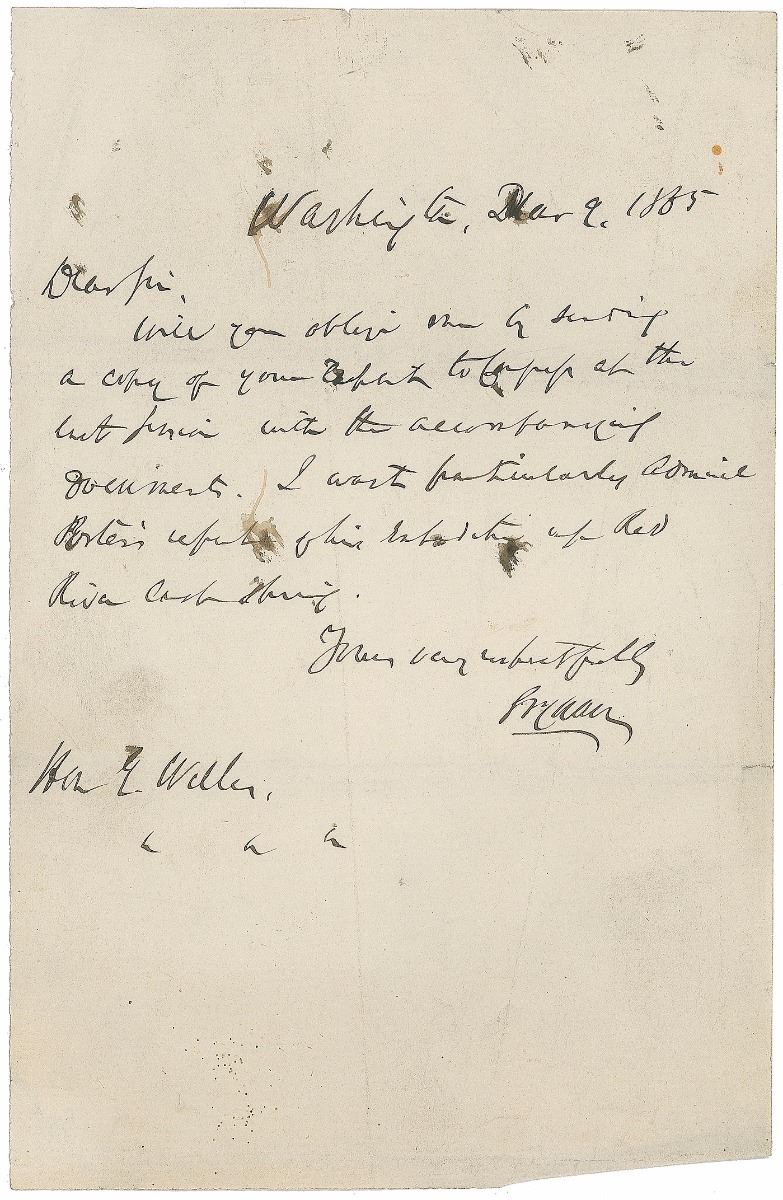 Washington, Mar 9. 1865
Dear Sir,
Will you oblige me by sending
a copy of your Report to Congress at the
last session with the accompanying
Documents. I want particularly Admiral
Porter's report of his Expedition up Red
River last Spring.
Yours very respectfully
Hon G. Welles,
" " "